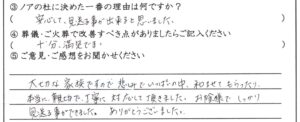 ③ノアの杜に決めた一番の理由は何ですか？
安心して、見送る事が出来ると思いました。
④葬儀・ご火葬で改善すべき点がありましたらご記入ください
十分、満足です！
⑤ご意見・ご感想をお聞かせください
大切な家族ですので悲しみでいっぱいの中、和ませてもらったり、
本当に親切で、丁寧に対応して頂きました。お陰様でしっかり
見送る事ができました。ありがとうございました。